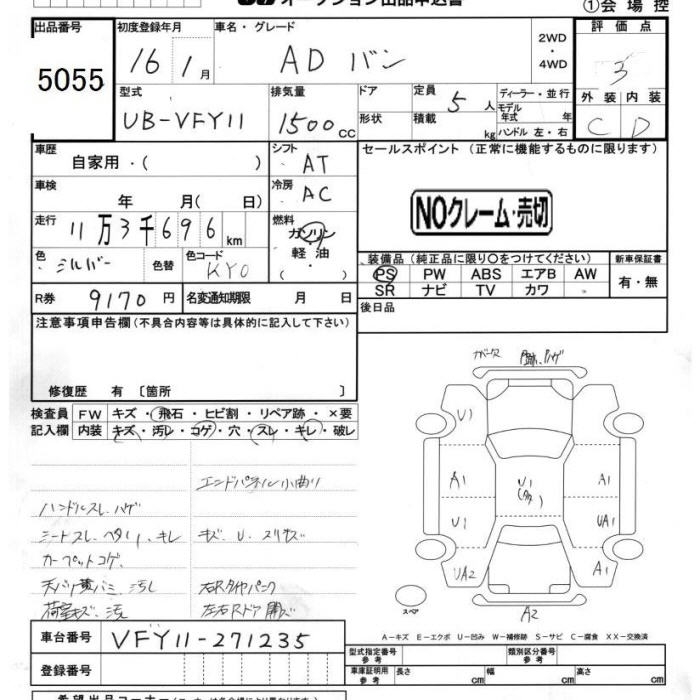 オークション出品申込書
①会場控
出品番号
5055
初度登録年月
16 1月
車名・グレード
AD バン
2WD
・
4WD
評価点
3
型式
UB-VFY11
排気量
1500cc
ドア
形状
定員
5人
積載
kg
ディーラー・並行
モデル年式 年
ハンドル 左・右
外装 内装
C D
車歴
自家用・( )
シフト
AT
セールスポイント (正常に機能するものに限ります)
車検
年 月( 日)
冷房
AC
NOクレーム・売切
走行
11万3千696km
燃料
ガソリン
軽油
( ・ )
色
シルバー
色替
色コード
KY0
装備品 (純正品に限り○をつけてください)
新車保証書
PS PW ABS エアB AW
SR ナビ TV カワ
有・無
R券
9170円
名変通知期限 月 日
後日品
注意事項申告欄(不具合内容等は具体的に記入して下さい)
修復歴 有 〔箇所 〕
検査員
記入欄
FW キズ・飛石・ヒビ割・リペア跡・×要
内装 キズ・汚レ・コゲ・穴・スレ・キレ・破レ
エンドパネル小曲り
ハンドルスレ、ハゲ
シートスレ、ヘタリ、キレ
キズ、U、スリキズ
カーペットコゲ、
天バリ黄バミ、汚し
右Rタイヤパンク
荷室キズ、汚
左右Rドア開ズ
U1
A1
U1
UA2
U1
(多)
A1
UA1
A1
A2
スペア
A-キズ E-エクボ U-凹み W-補修跡 S-サビ C-腐食 XX-交換済
車台番号
VFY11-271235
登録番号
型式指定番号
参考
類別区分番号
参考
車庫証明用
参考
長さ cm
幅 cm
高さ cm